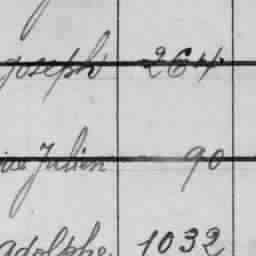 Joseph 264
Julien 90
adolphe 1032